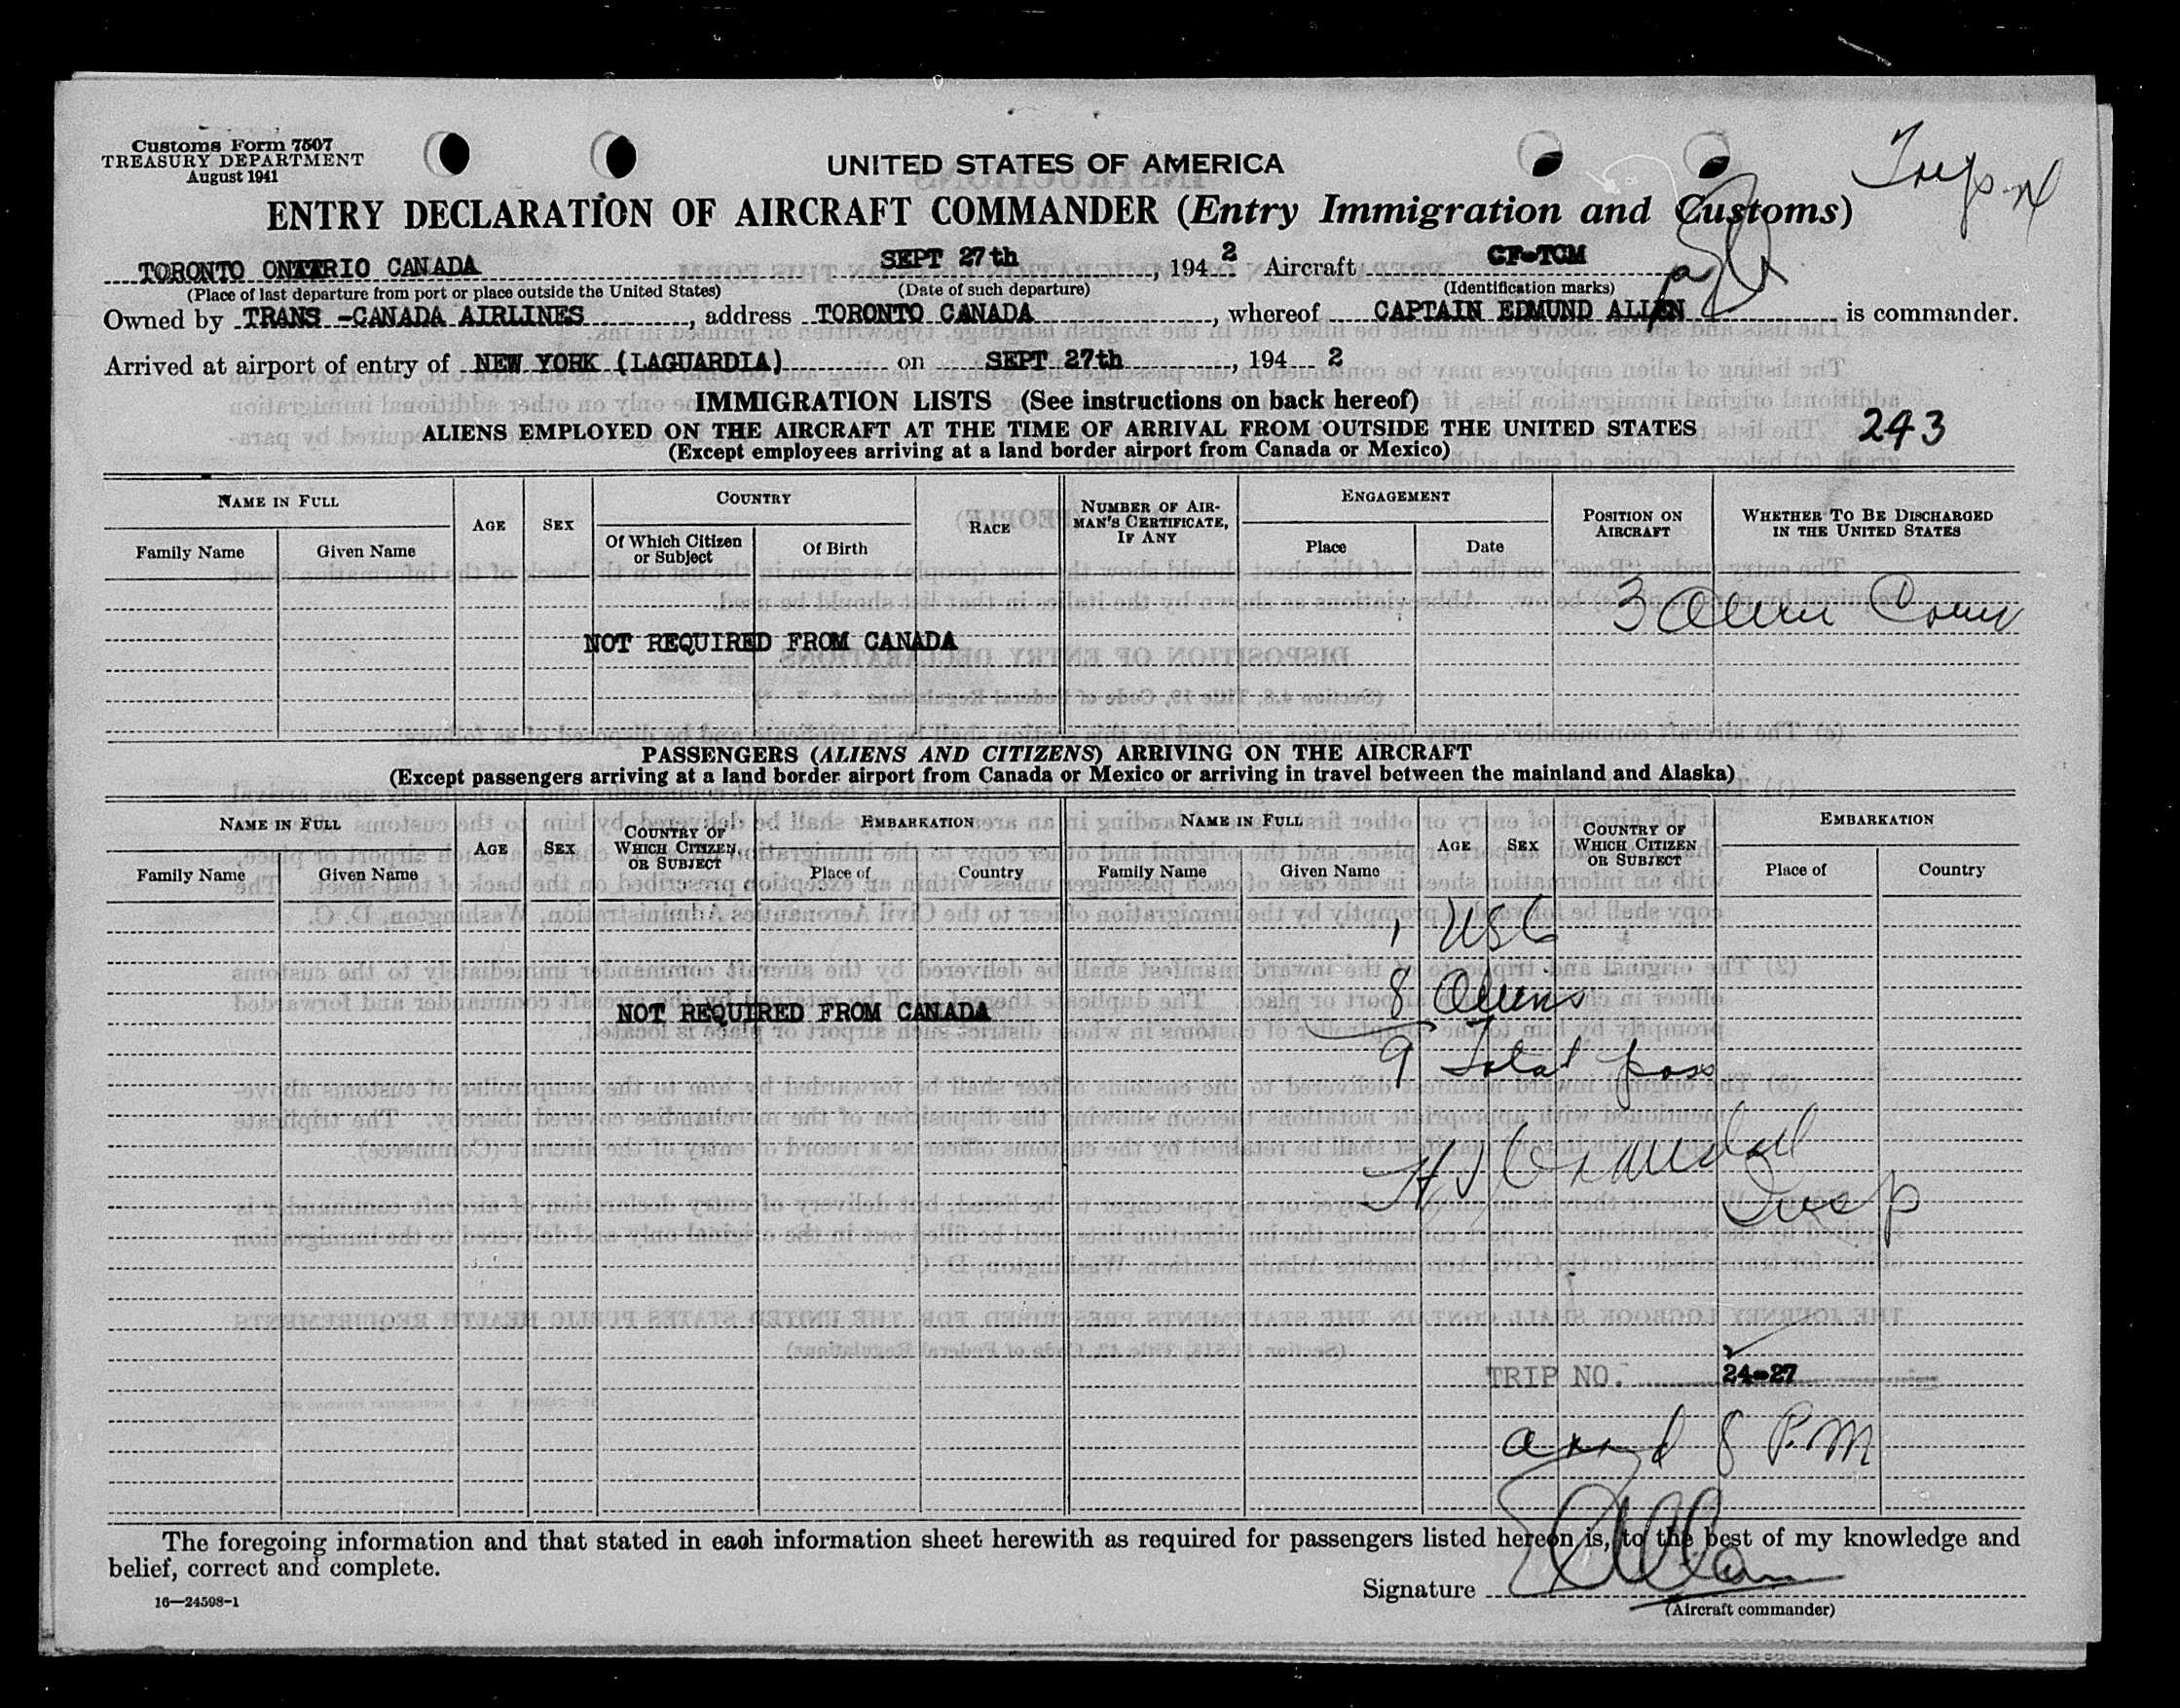 Customs Form 7507
TREASURY DEPARTMENT
August 1941
UNITED STATES OF AMERICA
ENTRY DECLARATION OF AIRCRAFT COMMANDER (Entry Immigration and Customs)
TORONTO ONTARIO CANADA SEPT 27th, 194 2 Aircraft CF-TCM
(Place of last departure from port or place outside the United States) (Date of such departure) (Identification marks)
Owned by TRANS -CANADA AIRLINES, address TORONTO CANADA, whereof CAPTAIN EDMUND ALLEN is commander.
Arrived at airport of entry of NEW YORK (LAGUARDIA) on SEPT 27th, 194 2
IMMIGRATION LISTS (See instructions on back hereof)
243
ALIENS EMPLOYED ON THE AIRCRAFT AT THE TIME OF ARRIVAL FROM OUTSIDE THE UNITED STATES
(Except employees arriving at a land border airport from Canada or Mexico)
NAME IN FULL AGE SEX COUNTRY RACE NUMBER OF AIRMAN'S CERTIFICATE, IF ANY ENGAGEMENT POSITION ON AIRCRAFT WHETHER TO BE DISCHARGED IN THE UNITED STATES
Family Name Given Name Of Which Citizen or Subject Of Birth Place Date
3 Alien
NOT REQUIRED FROM CANADA
PASSENGERS (ALIENS AND CITIZENS) ARRIVING ON THE AIRCRAFT
(Except passengers arriving at a land border airport from Canada or Mexico or arriving in travel between the mainland and Alaska)
NAME IN FULL AGE SEX COUNTRY OF WHICH CITIZEN OR SUBJECT EMBARKATION NAME IN FULL AGE SEX COUNTRY OF WHICH CITIZEN OR SUBJECT EMBARKATION
Family Name Given Name Place of Country Family Name Given Name Place of Country
1 USC
8 Aliens
NOT REQUIRED FROM CANADA
9 Total pass
Insp
TRIP NO. 24-27
arrd 8 P.M
The foregoing information and that stated in each information sheet herewith as required for passengers listed hereon is, to the best of my knowledge and
belief, correct and complete.
Signature E Allen
(Aircraft commander)
16—24598-1